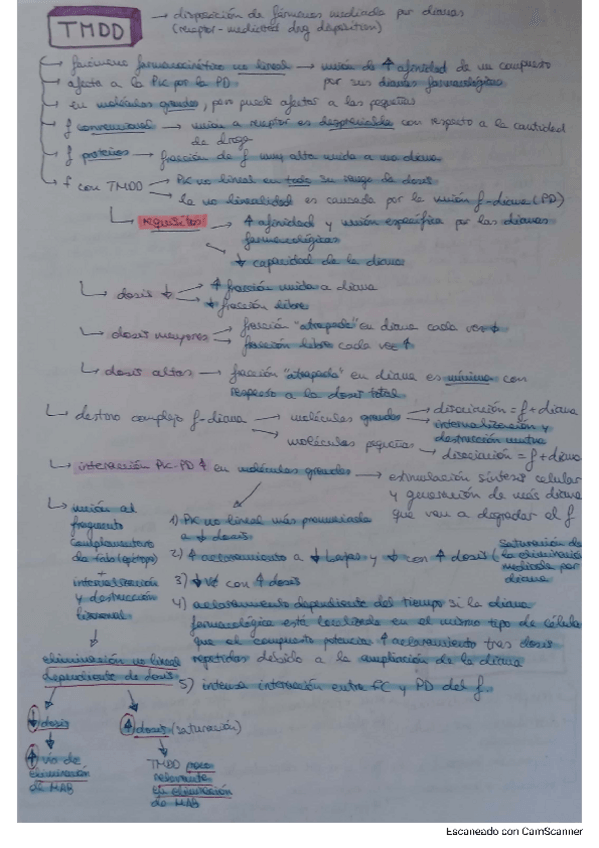 TMDD → disposición de fármacos mediada por dianas
(receptor-mediated drug disposition)
→ fenómeno farmacocinético no lineal → unión de ↑ afinidad de un compuesto
por sus dianas farmacológicas
→ afecta a la PK por la PD
→ en moléculas grandes, pero puede afectar a las pequeñas
→ f convencional → unión a receptor es despreciable con respecto a la cantidad
de droga
→ f proteicos → fracción de f muy alta unida a una diana
→ f con TMDD → PK no lineal en todo su rango de dosis
→ la no linealidad es causada por la unión f-diana (PD)
→ requisitos → ↑ afinidad y unión específica por las dianas
farmacológicas
→ ↓ capacidad de la diana
→ dosis ↓ → ↑ fracción unida a diana
→ ↓ fracción libre
→ dosis mayores → fracción "atrapada" en diana cada vez ↓
→ fracción libre cada vez ↑
→ dosis altas → fracción "atrapada" en diana es mínima con
respecto a la dosis total
→ destino complejo f-diana → moléculas grandes → disociación = f + diana
→ internalización y
destrucción mutua
→ moléculas pequeñas → disociación = f + diana
→ interacción PK-PD ↑ en moléculas grandes → estimulación síntesis celular
y generación de más diana
que van a degradar el f
→ unión al
fragmento
complementario
de Fab (epítopo)
+
internalización
y destrucción
lisosomal
1) PK no lineal más pronunciada
a ↓ dosis
2) ↑ aclaramiento a ↓ bajas y ↓ con ↑ dosis (saturación de
la eliminación
mediada por
diana
3) ↓ Vd con ↑ dosis
4) aclaramiento dependiente del tiempo si la diana
farmacológica está localizada en el mismo tipo de célula
que el compuesto potencia ↑ aclaramiento tras dosis
repetidas debido a la ampliación de la diana
5) intensa interacción entre FC y PD del f.
eliminación no lineal
dependiente de dosis
↓ dosis
↑ vía de
eliminación
de MAB
↑ dosis (saturación)
TMDD poco
relevante
en eliminación
de MAB
Escaneado con CamScanner